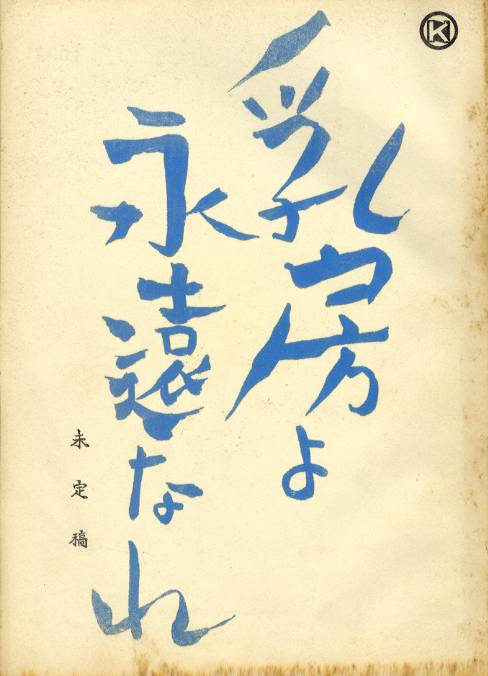 Ⓚ
乳房よ
永遠なれ
未定稿